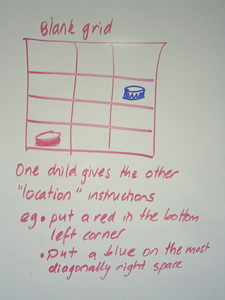 Blank grid
One child gives the other
"location" instructions
eg • put a red in the bottom
left corner
• put a blue on the most
diagonally right space